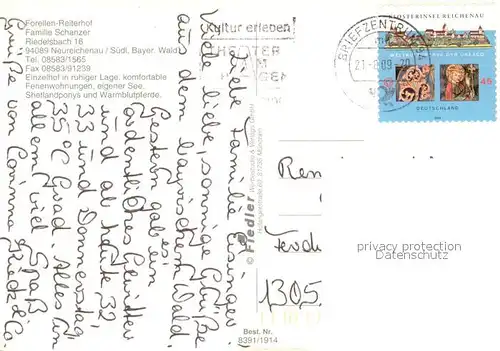 Forellen-Reiterhof
Familie Schanzer
Riedelsbach 16
94089 Neureichenau / Südl. Bayer. Wald
Tel. 08583/1565
Fax 08583/91239
Einzelhof in ruhiger Lage, komfortable
Ferienwohnungen, eigener See.
Shetlandponys und Warmblutpferde.
Liebe Familie Eisinger,
viele liebe, sonnige Grüße
aus dem bayrischen Wald.
Gestern gab es
ordentliches Gewitter
und ab heute 32,
33 und Donnerstag
35°C Grad. Alles in
allem viel Spaß
Grüße von Corinna & Co.
Kultur erleben!
THEATER
AM
HAGEN
BRIEFZENTRUM
21.-8.09-20
KLOSTERINSEL REICHENAU
WELTKULTURERBE DER UNESCO
45
DEUTSCHLAND
© Fiedler
Ren
1305
Best. Nr.
8391/1914
privacy protection
www.ansichtskartenversand.com